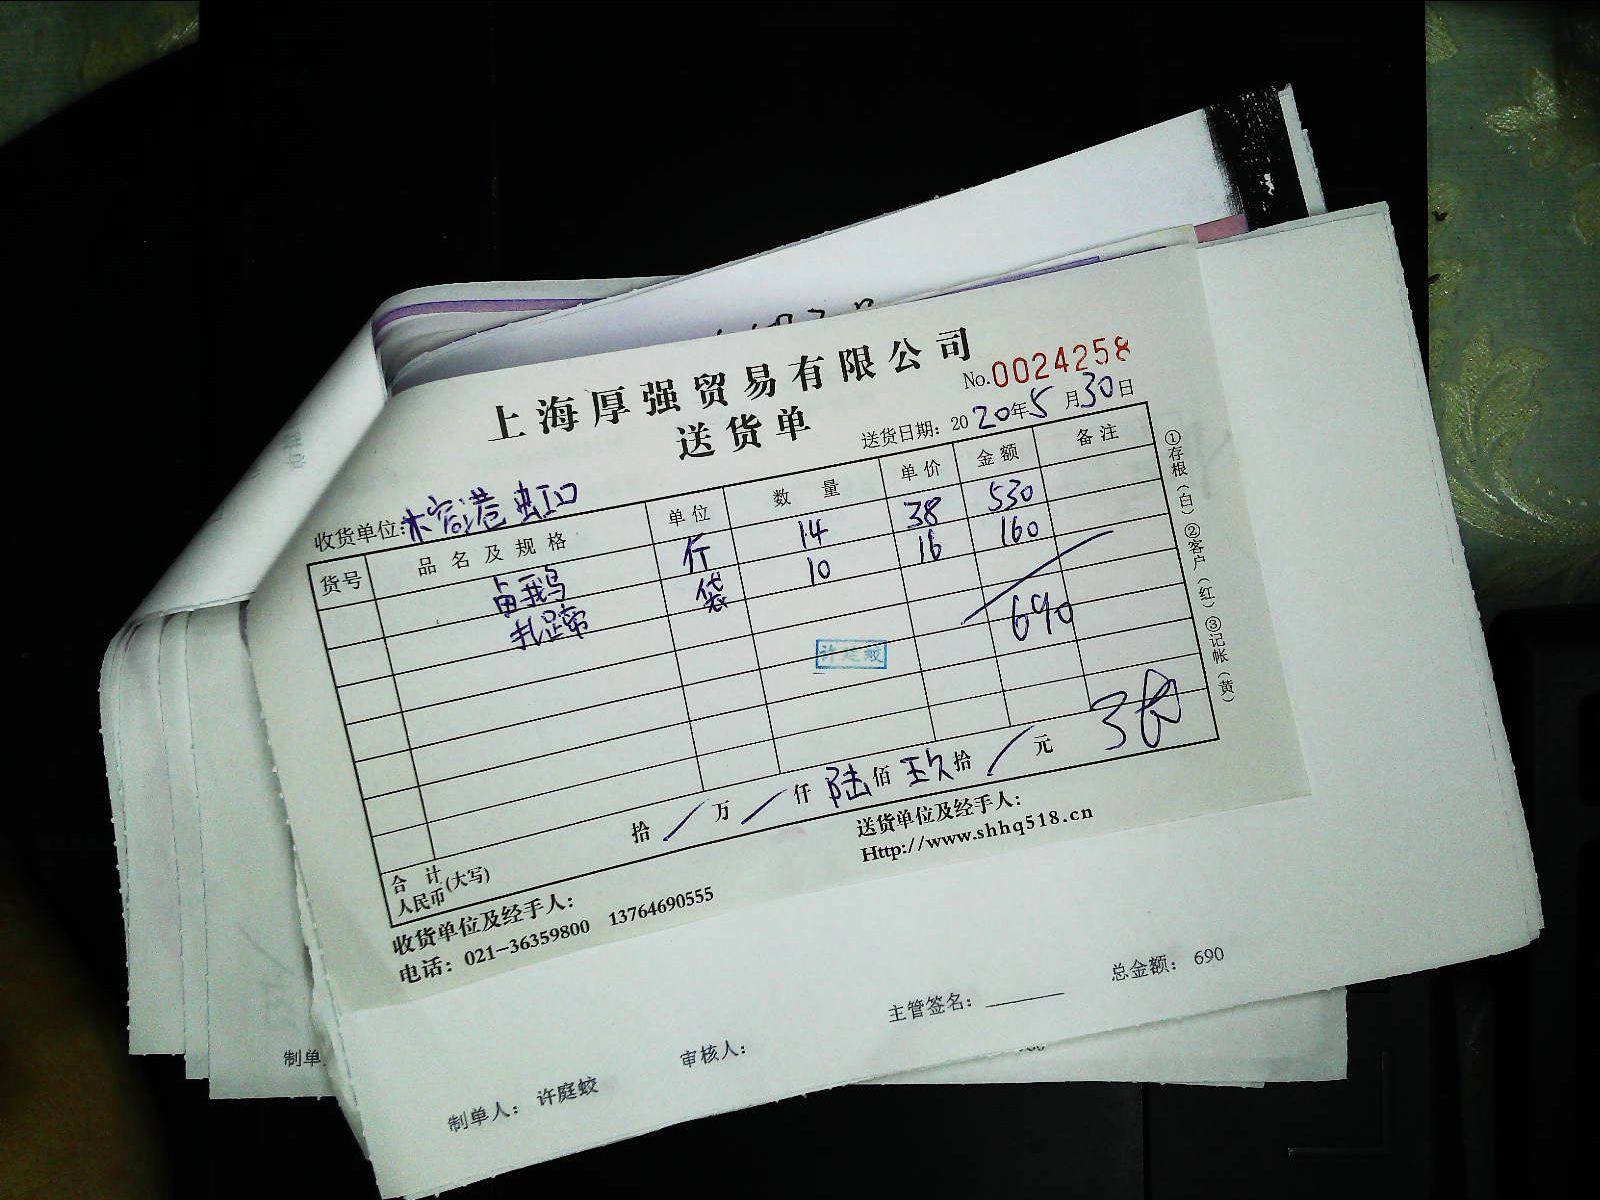 上海厚强贸易有限公司
送货单
No.0024258
送货日期：2020年5月30日
收货单位：木窑港 虹口
货号 品名及规格 单位 数量 单价 金额 备注
卤鹅 斤 14 38 530
扎蹄 袋 10 16 160
690
许廷蛟
合计人民币(大写) 拾/万/仟陆佰玖拾/元
收货单位及经手人：
送货单位及经手人：
电话：021-36359800 13764690555
Http://www.shhq518.cn
①存根（白）②客户（红）③记帐（黄）
制单人： 许庭蛟
审核人：
主管签名：
总金额： 690
制单